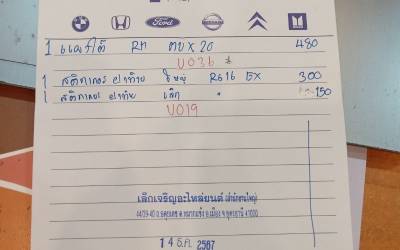 Ford
NISSAN
1 RH ตบX 20 480
U036 *
1 สติกเกอร์ ฝาท้าย ใหญ่ R616 EX 300
1 สติกเกอร์ ฝาท้าย เล็ก 150
U019
เลิกเจริญอะไหล่ยนต์ (สำนักงานใหญ่)
14 ธ.ค. 2567